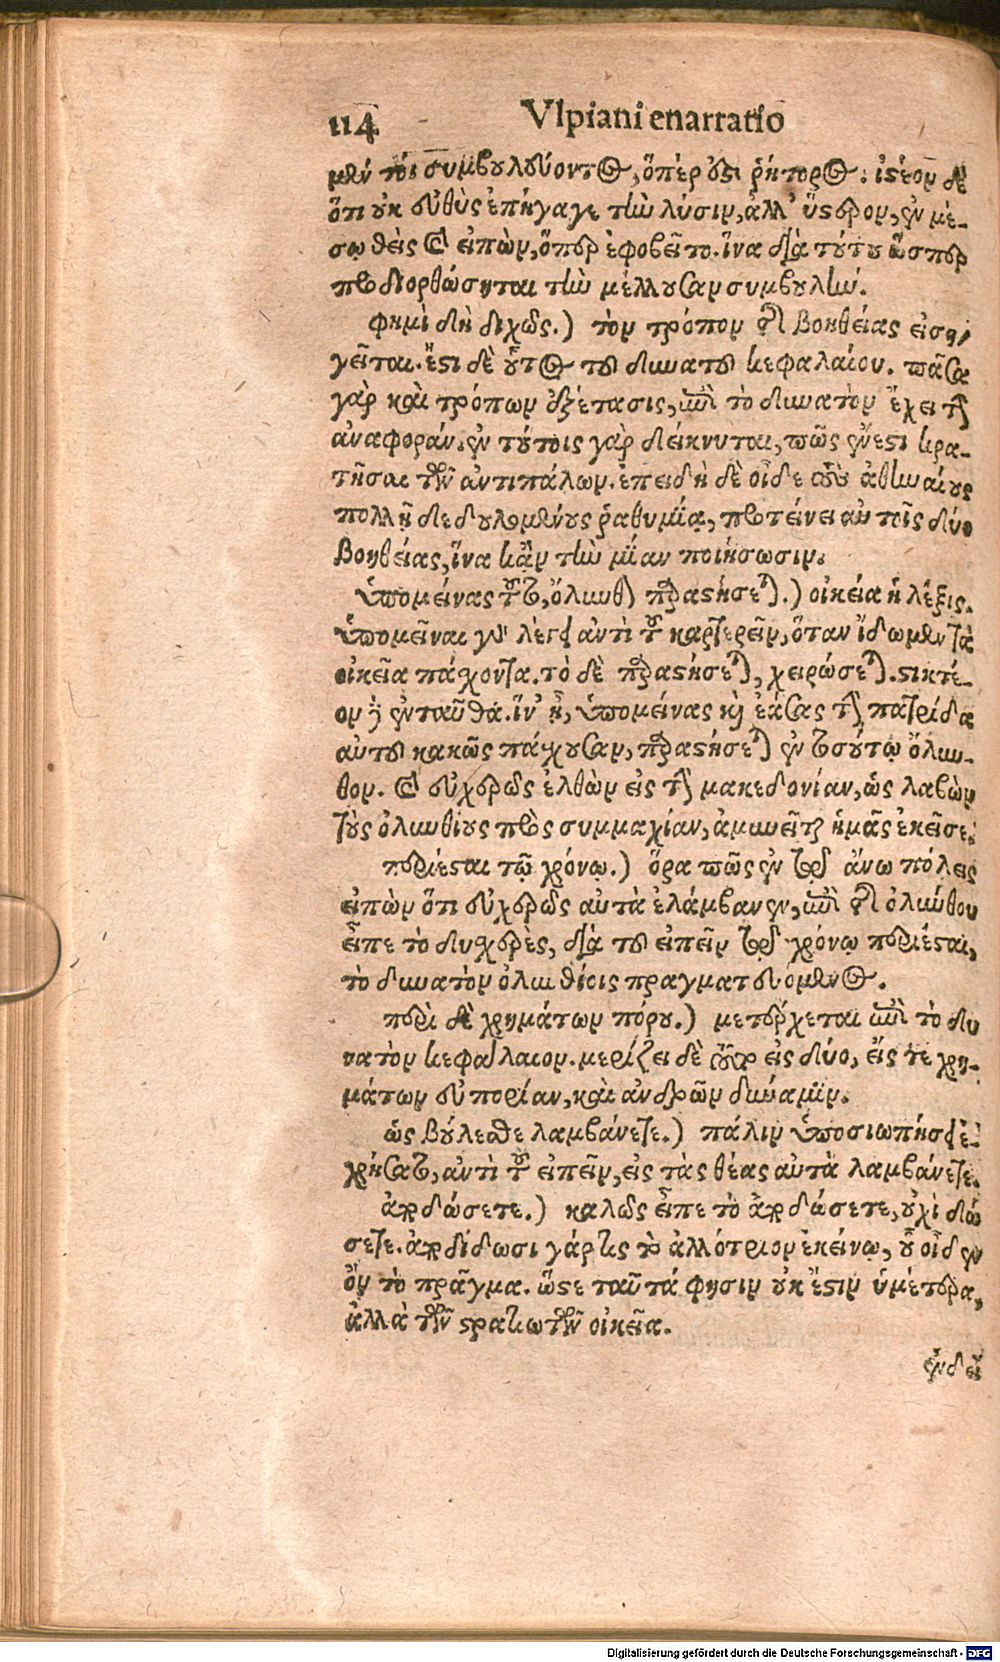 114 Vlpiani enarratio
μὲν τοι συμβουλεύοντος, ὅπέρ ἐστι ῥήτορος. ἰστέον δὲ
ὅτι οὐκ εὐθὺς ἐπήγαγε τὴν λύσιν, ἀλλ' ὕστερον, ἐν μέ-
σῳ θεὶς καὶ εἰπὼν, ὅπερ ἐφοβεῖτο. ἵνα διὰ τούτου ὥσπερ
προδιορθώσηται τὴν μέλλουσαν συμβουλήν.
φημὶ δὴ διχῶς.) τὸν τρόπον τῆς βοηθείας εἰση-
γεῖται. ἔστι δὲ οὗτος τοῦ δυνατοῦ κεφαλαίου. πᾶσα
γὰρ καὶ τρόπων ἐξέτασις, ἐπὶ τὸ δυνατὸν ἔχει τὴν
ἀναφοράν. ἐν τούτοις γὰρ δείκνυται, πῶς ἔνεστι κρα-
τῆσαι τῶν ἀντιπάλων. ἐπειδὴ δὲ οἶδε τοὺς ἀθηναίους
πολλῇ δεδουλομένους ῥαθυμίᾳ, προτείνει αὐτοῖς δύο
βοηθείας, ἵνα κἂν τὴν μίαν ποιήσωσιν.
ὑπομείνας τοῦτο, ὄλυνθον παραστήσεται.) οἰκεία ἡ λέξις.
ὑπομεῖναι γὰρ λέγεται ἀντὶ τοῦ καρτερεῖν, ὅταν ἴδωμεν τὰ
οἰκεῖα πάσχοντα. τὸ δὲ παραστήσεται, χειρώσεται. στικτέ-
ον δὲ ἐνταῦθα. ἵν' ᾖ, ὑπομείνας καὶ ἐάσας τὴν πατρίδα
αὐτοῦ κακῶς πάσχουσαν, παραστήσεται ἐν τοσούτῳ ὄλυν-
θον. καὶ εὐχερῶς ἐλθὼν εἰς τὴν μακεδονίαν, ὡς λαβὼν
τοὺς ὀλυνθίους πρὸς συμμαχίαν, ἀμυνεῖται ἡμᾶς ἐκεῖσε.
περιέσται τῷ χρόνῳ.) ὅρα πῶς ἐν ταῖς ἄνω πόλεις
εἰπὼν ὅτι εὐχερῶς αὐτὰ ἐλάμβανεν, ἐπὶ τῆς ὀλύνθου
εἶπε τὸ δυσχερὲς, διὰ τοῦ εἰπεῖν τῷ χρόνῳ περιέσται,
τὸ δυνατὸν ὀλυνθίοις πραγματευόμενος.
περὶ δὲ χρημάτων πόρου.) μετέρχεται ἐπὶ τὸ δυ
νατὸν κεφάλαιον. μερίζει δὲ αὐτὸ εἰς δύο, εἴς τε χρη-
μάτων εὐπορίαν, καὶ ἀνδρῶν δύναμιν.
ὡς βούλεσθε λαμβάνετε.) πάλιν ὑποσιωπήσει ἐ-
χρήσατο, ἀντὶ τοῦ εἰπεῖν, εἰς τὰς θέας αὐτὰ λαμβάνετε.
ἀποδώσετε.) καλῶς εἶπε τὸ ἀποδώσετε, οὐχὶ δώ
σετε. ἀποδίδωσι γάρ τις τὸ ἀλλότριον ἐκείνῳ, οὗ οἶδεν
ὂν τὸ πρᾶγμα. ὥστε ταῦτά φησιν οὐκ ἔστιν ὑμέτερα,
ἀλλὰ τῶν στρατιωτῶν οἰκεῖα.
ἐνδεῖ
Digitalisierung gefördert durch die Deutsche Forschungsgemeinschaft - DFG